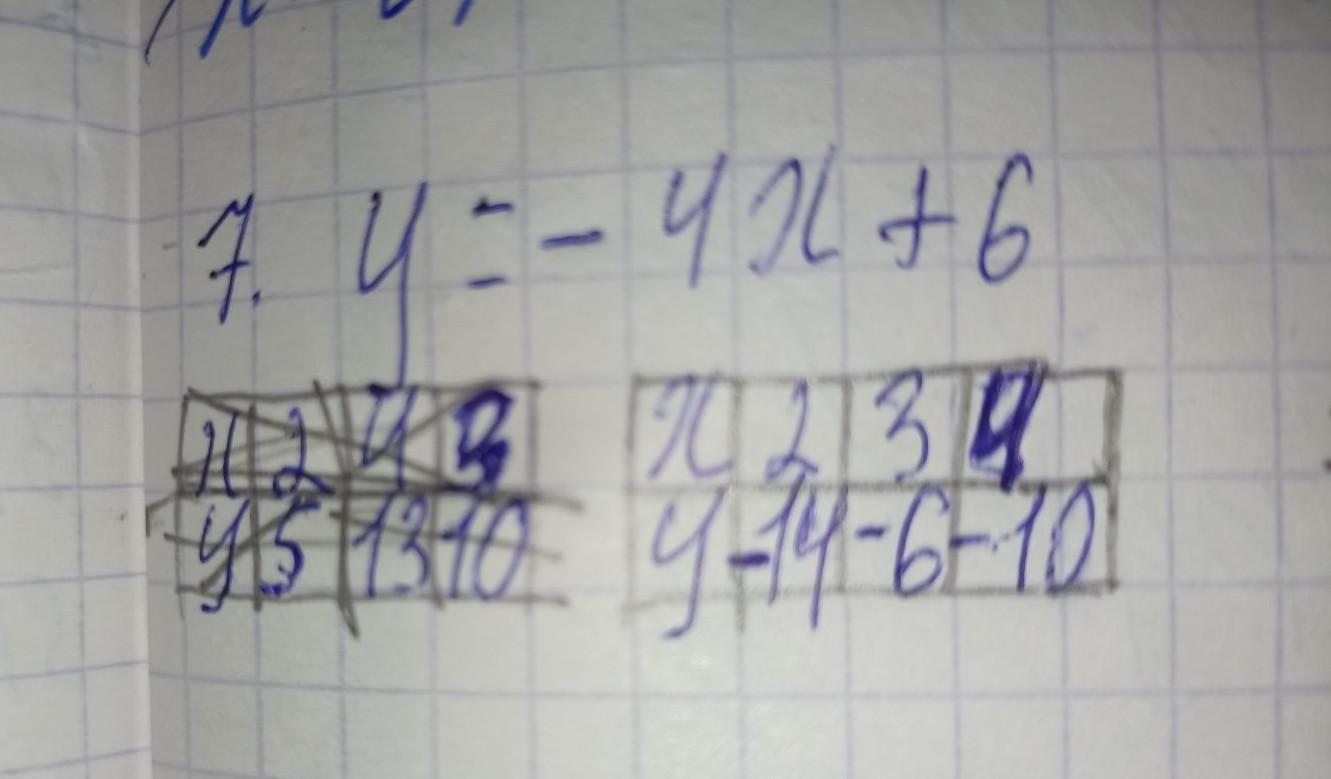 7. y = - 4x + 6
x 2 4 3 x 2 3 4
y 5 13 10 y -14 -6 -10